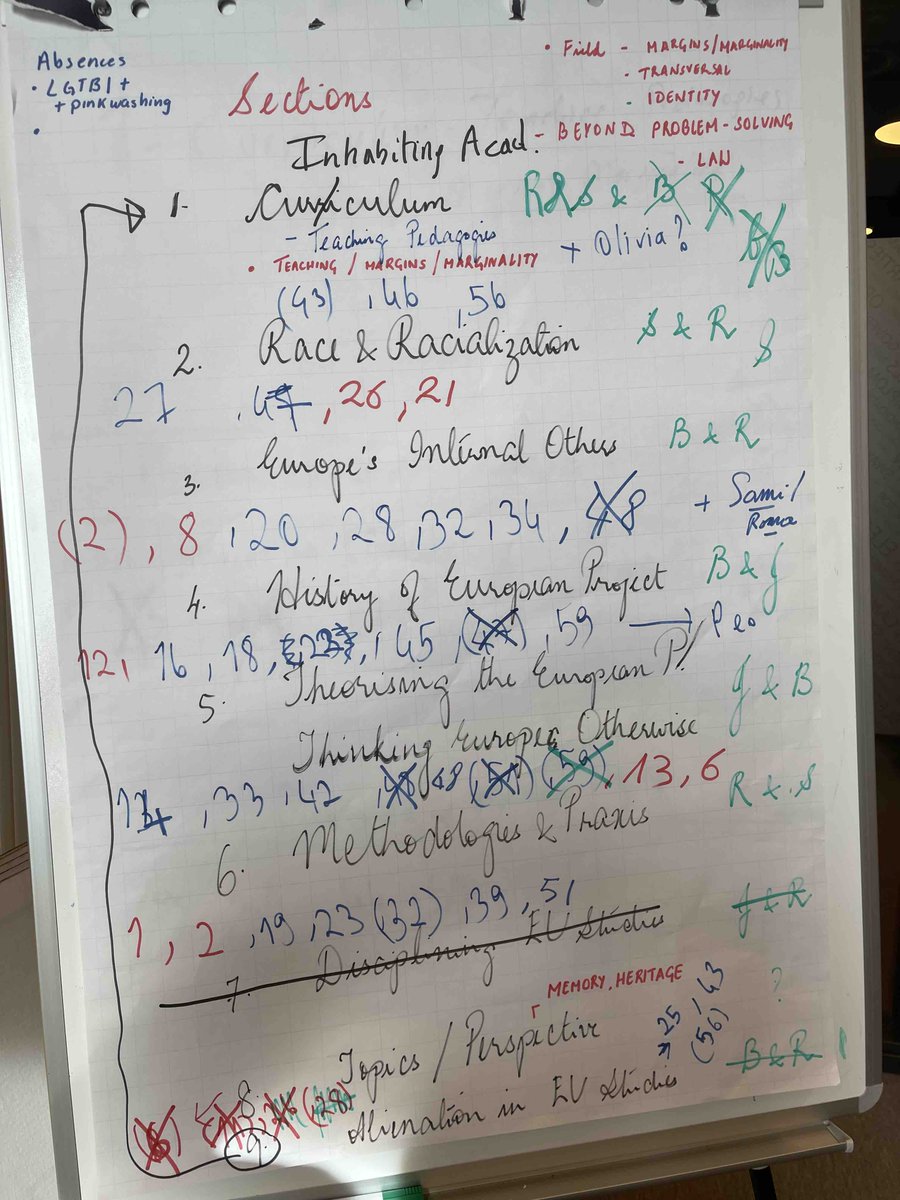 Absences
• LGTBI +
+ pinkwashing
•
Sections
• Field - MARGINS/MARGINALITY
- TRANSVERSAL
- IDENTITY
- BEYOND PROBLEM-SOLVING
- LAW
Inhabiting Acad.
1- Curriculum R&S & B R
- Teaching Pedagogies + Olivia?
• TEACHING / MARGINS/MARGINALITY
(43) , 46 , 56
2. Race & Racialization S & R S
27 , 47 , 26 , 21
3. Europe's Internal Others B & R
(2) , 8 , 20 , 28 , 32 , 34 , 48 + Sami/
Roma
4. History of European Project B & J
12, 16 , 18 , 23 , 45 , 59 → Peo
5. Theorising the European P/ J & B
Thinking Europe Otherwise
, 33 , 42 , 48 , 13 , 6
6. Methodologies & Praxis R & S
1 , 2 , 19 , 23 (37) , 39 , 51
7. Disciplining EU Studies J & R
MEMORY, HERITAGE
8. Topics / Perspective → 25 , 43 ?
(56)
(28)
9. Alienation in EU Studies B & R